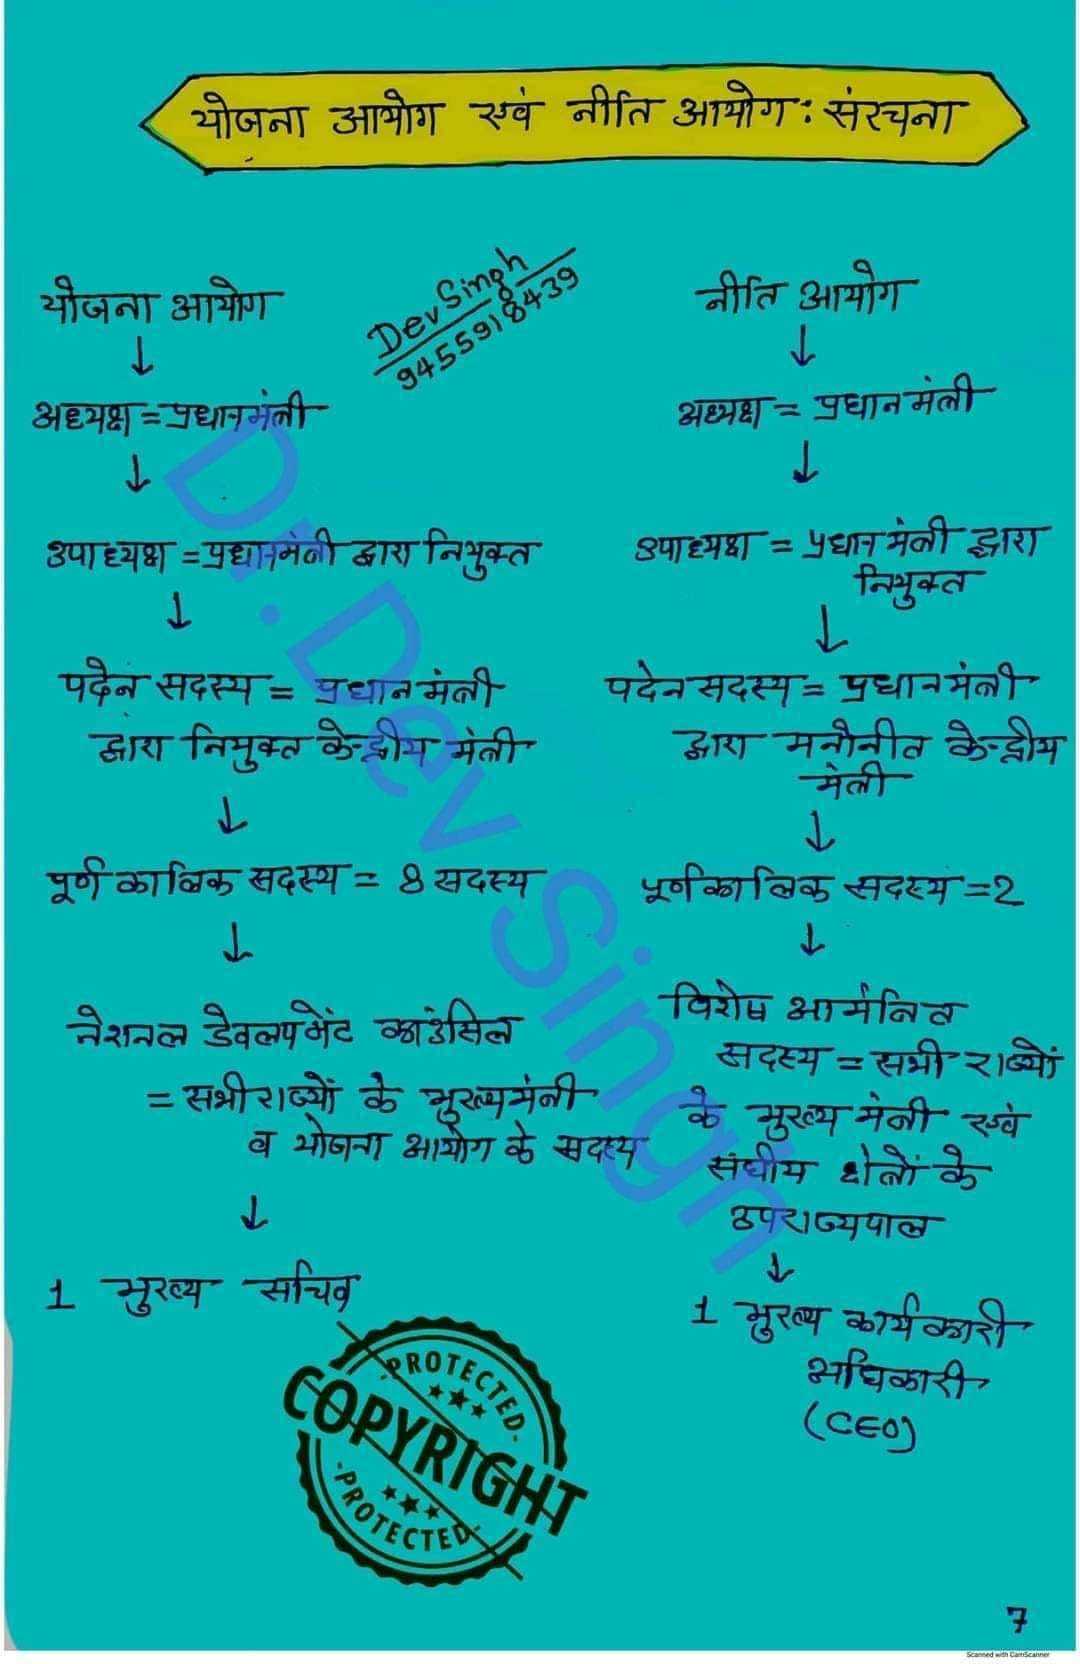 योजना आयोग एवं नीति आयोग : संरचना
Dev Singh
9455918439
योजना आयोग
↓
अध्यक्ष = प्रधानमंत्री
↓
उपाध्यक्ष = प्रधानमंत्री द्वारा नियुक्त
↓
पदेन सदस्य = प्रधानमंत्री
द्वारा नियुक्त केन्द्रीय मंत्री
↓
पूर्णकालिक सदस्य = 8 सदस्य
↓
नेशनल डेवलपमेंट काउंसिल
= सभी राज्यों के मुख्यमंत्री
व योजना आयोग के सदस्य
↓
1 मुख्य सचिव
नीति आयोग
↓
अध्यक्ष = प्रधानमंत्री
↓
उपाध्यक्ष = प्रधानमंत्री द्वारा
नियुक्त
↓
पदेन सदस्य = प्रधानमंत्री
द्वारा मनोनीत केन्द्रीय
मंत्री
↓
पूर्णकालिक सदस्य = 2
↓
विशेष आमंनित
सदस्य = सभी राज्यों
के मुख्यमंत्री एवं
संघीय क्षेत्रों के
उपराज्यपाल
↓
1 मुख्य कार्यकारी
अधिकारी
(CEO)
Dr. Dev Singh
PROTECTED
COPYRIGHT
PROTECTED
7
Scanned with CamScanner